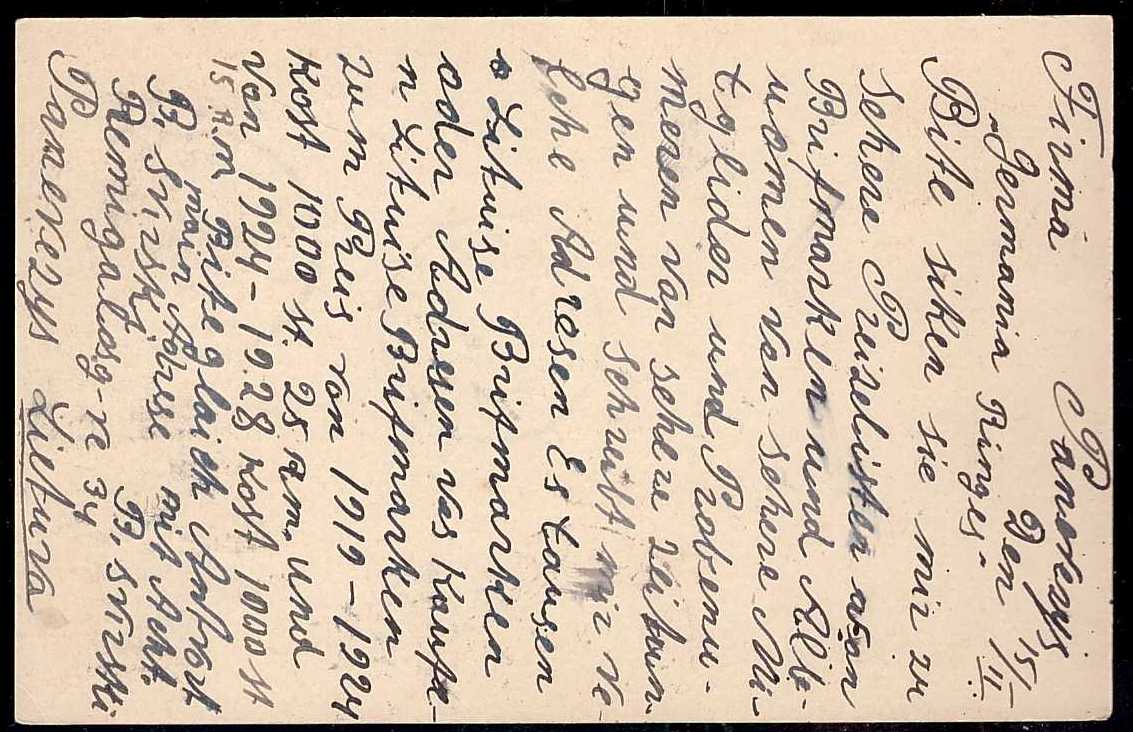 Firma Panevezys
„Germania Ringes" Den 15/II
Bite siken sie mir zu
sehere Preiselisten von
Brifmarken und Alle
uamen von sehere Mi-
tglider und Probenu-
meren van sehere Zeitun-
gen und schreibt mir ve-
lche Adresen Es tausen
Lituise Brifmarken
oder Adresen vas Kaufe-
n Lituise Brifmarken
zum Preis von 1919-1924
Kost 1000 st. 25 R.m. und
Von 1924-1928 Kost 1000 st
15 R.m Bite glaich Antvort
main Adrese mit Acht.
B. Svirski B. Svirski
Remigalos g-n 34
Panevezys Lietuva